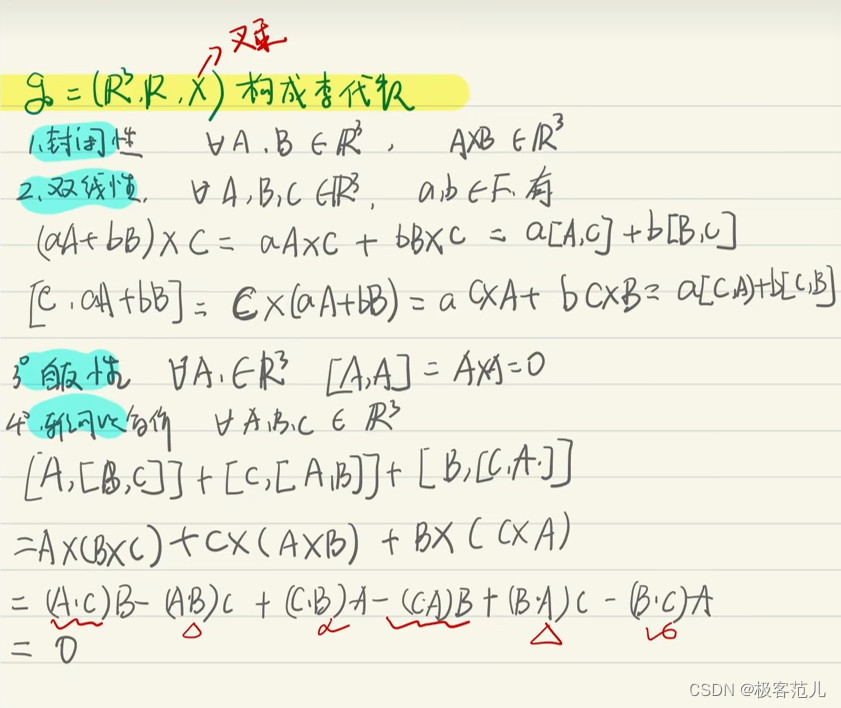 叉乘
g = (R³, R, X) 构成李代数
1. 封闭性 ∀A, B ∈ R³, A×B ∈ R³
2. 双线性. ∀A, B, C ∈ R³, a,b ∈ F, 有
(aA+bB)×C = aA×C + bB×C = a[A,C] + b[B,C]
[C, aA+bB] = C×(aA+bB) = a C×A + b C×B = a[C,A)+b[C,B]
3° 自反性 ∀A, ∈ R³ [A,A] = A×A = 0
4°. 雅可比等价 ∀A,B,C ∈ R³
[A,[B,C]] + [C,[A,B]] + [B,[C,A.]]
= A×(B×C) + C×(A×B) + B×(C×A)
= (A·C)B - (A·B)C + (C·B)·A - (C·A)B + (B·A)C - (B·C)·A
= 0
CSDN @极客范儿